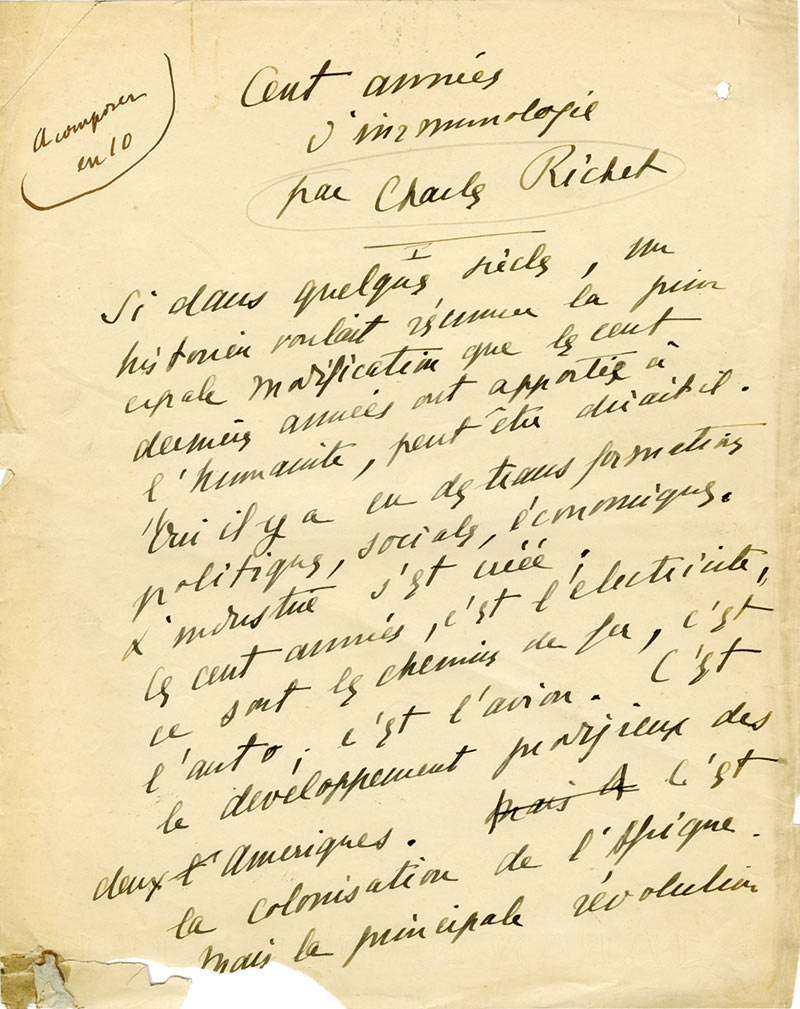 A composer
en 10
Cent années
d'immunologie
par Charles Richet
I
Si dans quelques siècles, un
historien voulait résumer la prin
cipale modification que les cent
dernières années ont apportées à
l'humanité, peut être dirait il.
"Oui il y a eu des transformations
politiques, sociales, économiques.
L'industrie s'est créé.
Ces cent années, c'est l'électricité,
ce sont les chemins de fer, c'est
l'auto, c'est l'avion. C'est
le développement prodigieux des
deux l' Amériques. mais A C'est
la colonisation de l'Afrique.
Mais la principale révolution